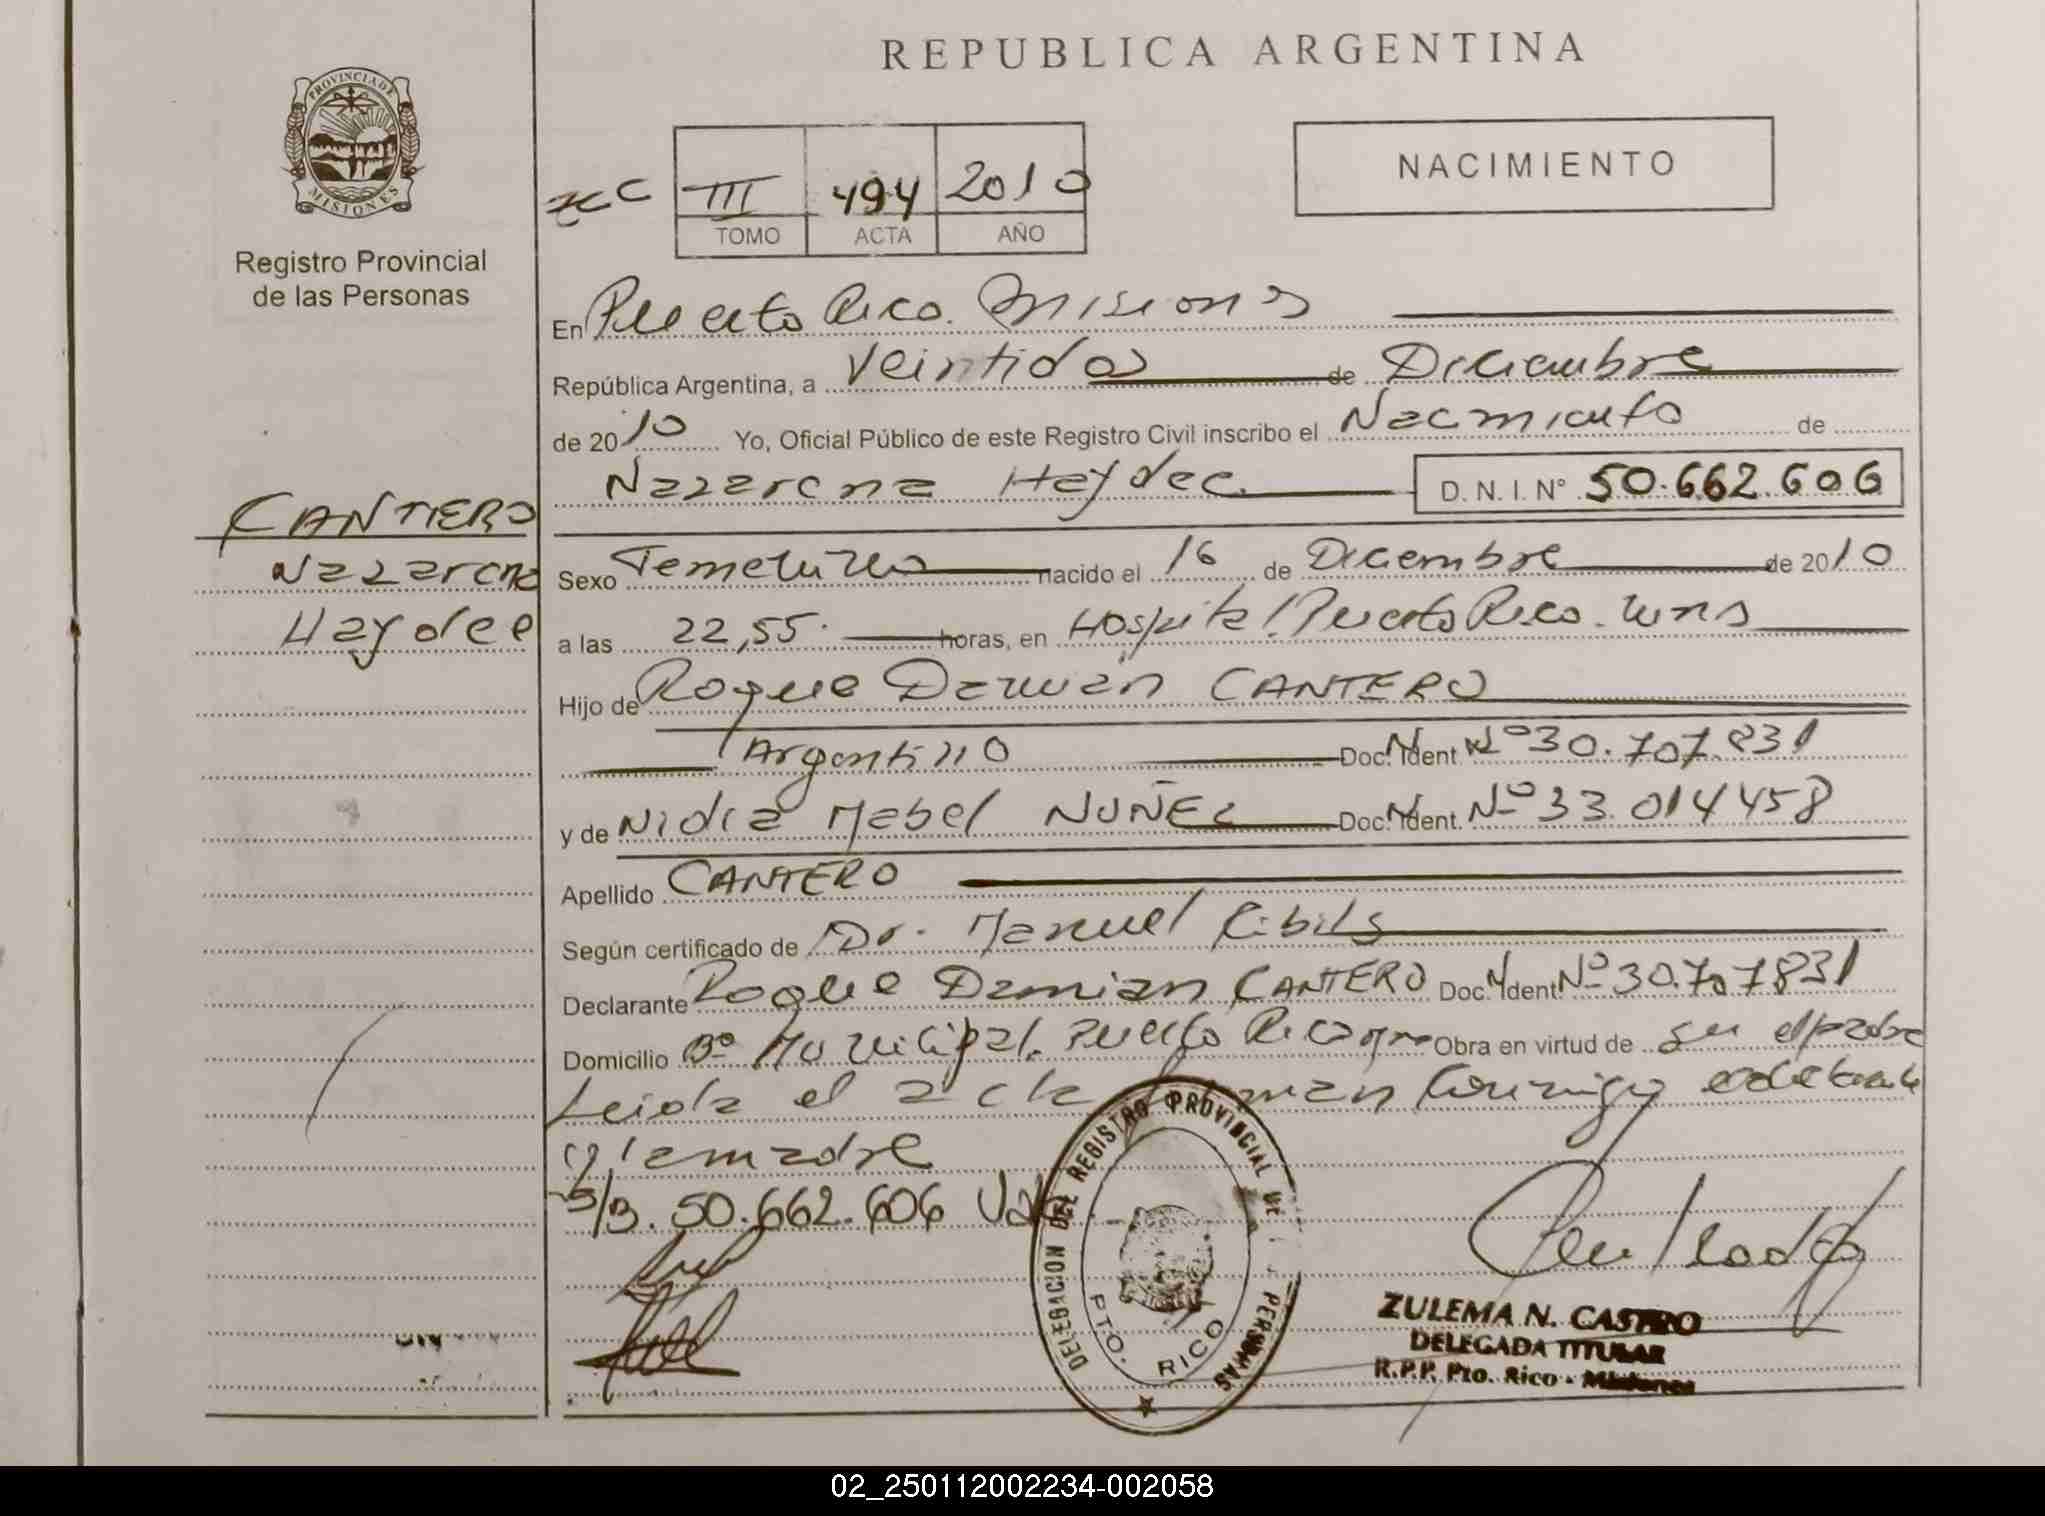 REPUBLICA ARGENTINA
PROVINCIA DE
MISIONES
Registro Provincial
de las Personas
III 494 2010
TOMO ACTA AÑO
NACIMIENTO
En Puerto Rico. Misiones
República Argentina, a veintidos de Diciembre
de 2010 Yo, Oficial Público de este Registro Civil inscribo el Nacimiento de
Nazarena Haydee D. N. I. N° 50.662.606
CANTERO
Nazarena
Haydee
Sexo Femenino nacido el 16 de Diciembre de 2010
a las 22,55. horas, en Hospital Puerto Rico. Mns
Hijo de Roque Damián CANTERO
Argentino Doc. Ident. N° 30.707.831
y de Nidia Mabel NUÑEZ Doc. Ident. N° 33.014458
Apellido CANTERO
Según certificado de Dr. Manuel Ribils
Declarante Roque Damian CANTERO Doc. Ident. N° 30.707831
Domicilio B° Municipal. Puerto Rico Obra en virtud de ser el padre
Leida el acta firman conmigo el declarante
y la madre
S/B. 50.662.606 Vale
DELEGACION DEL REGISTRO PROVINCIAL DE PERSONAS
PTO. RICO
ZULEMA N. CASTRO
DELEGADA TITULAR
R.P.P. Pto. Rico - Misiones
02_250112002234-002058